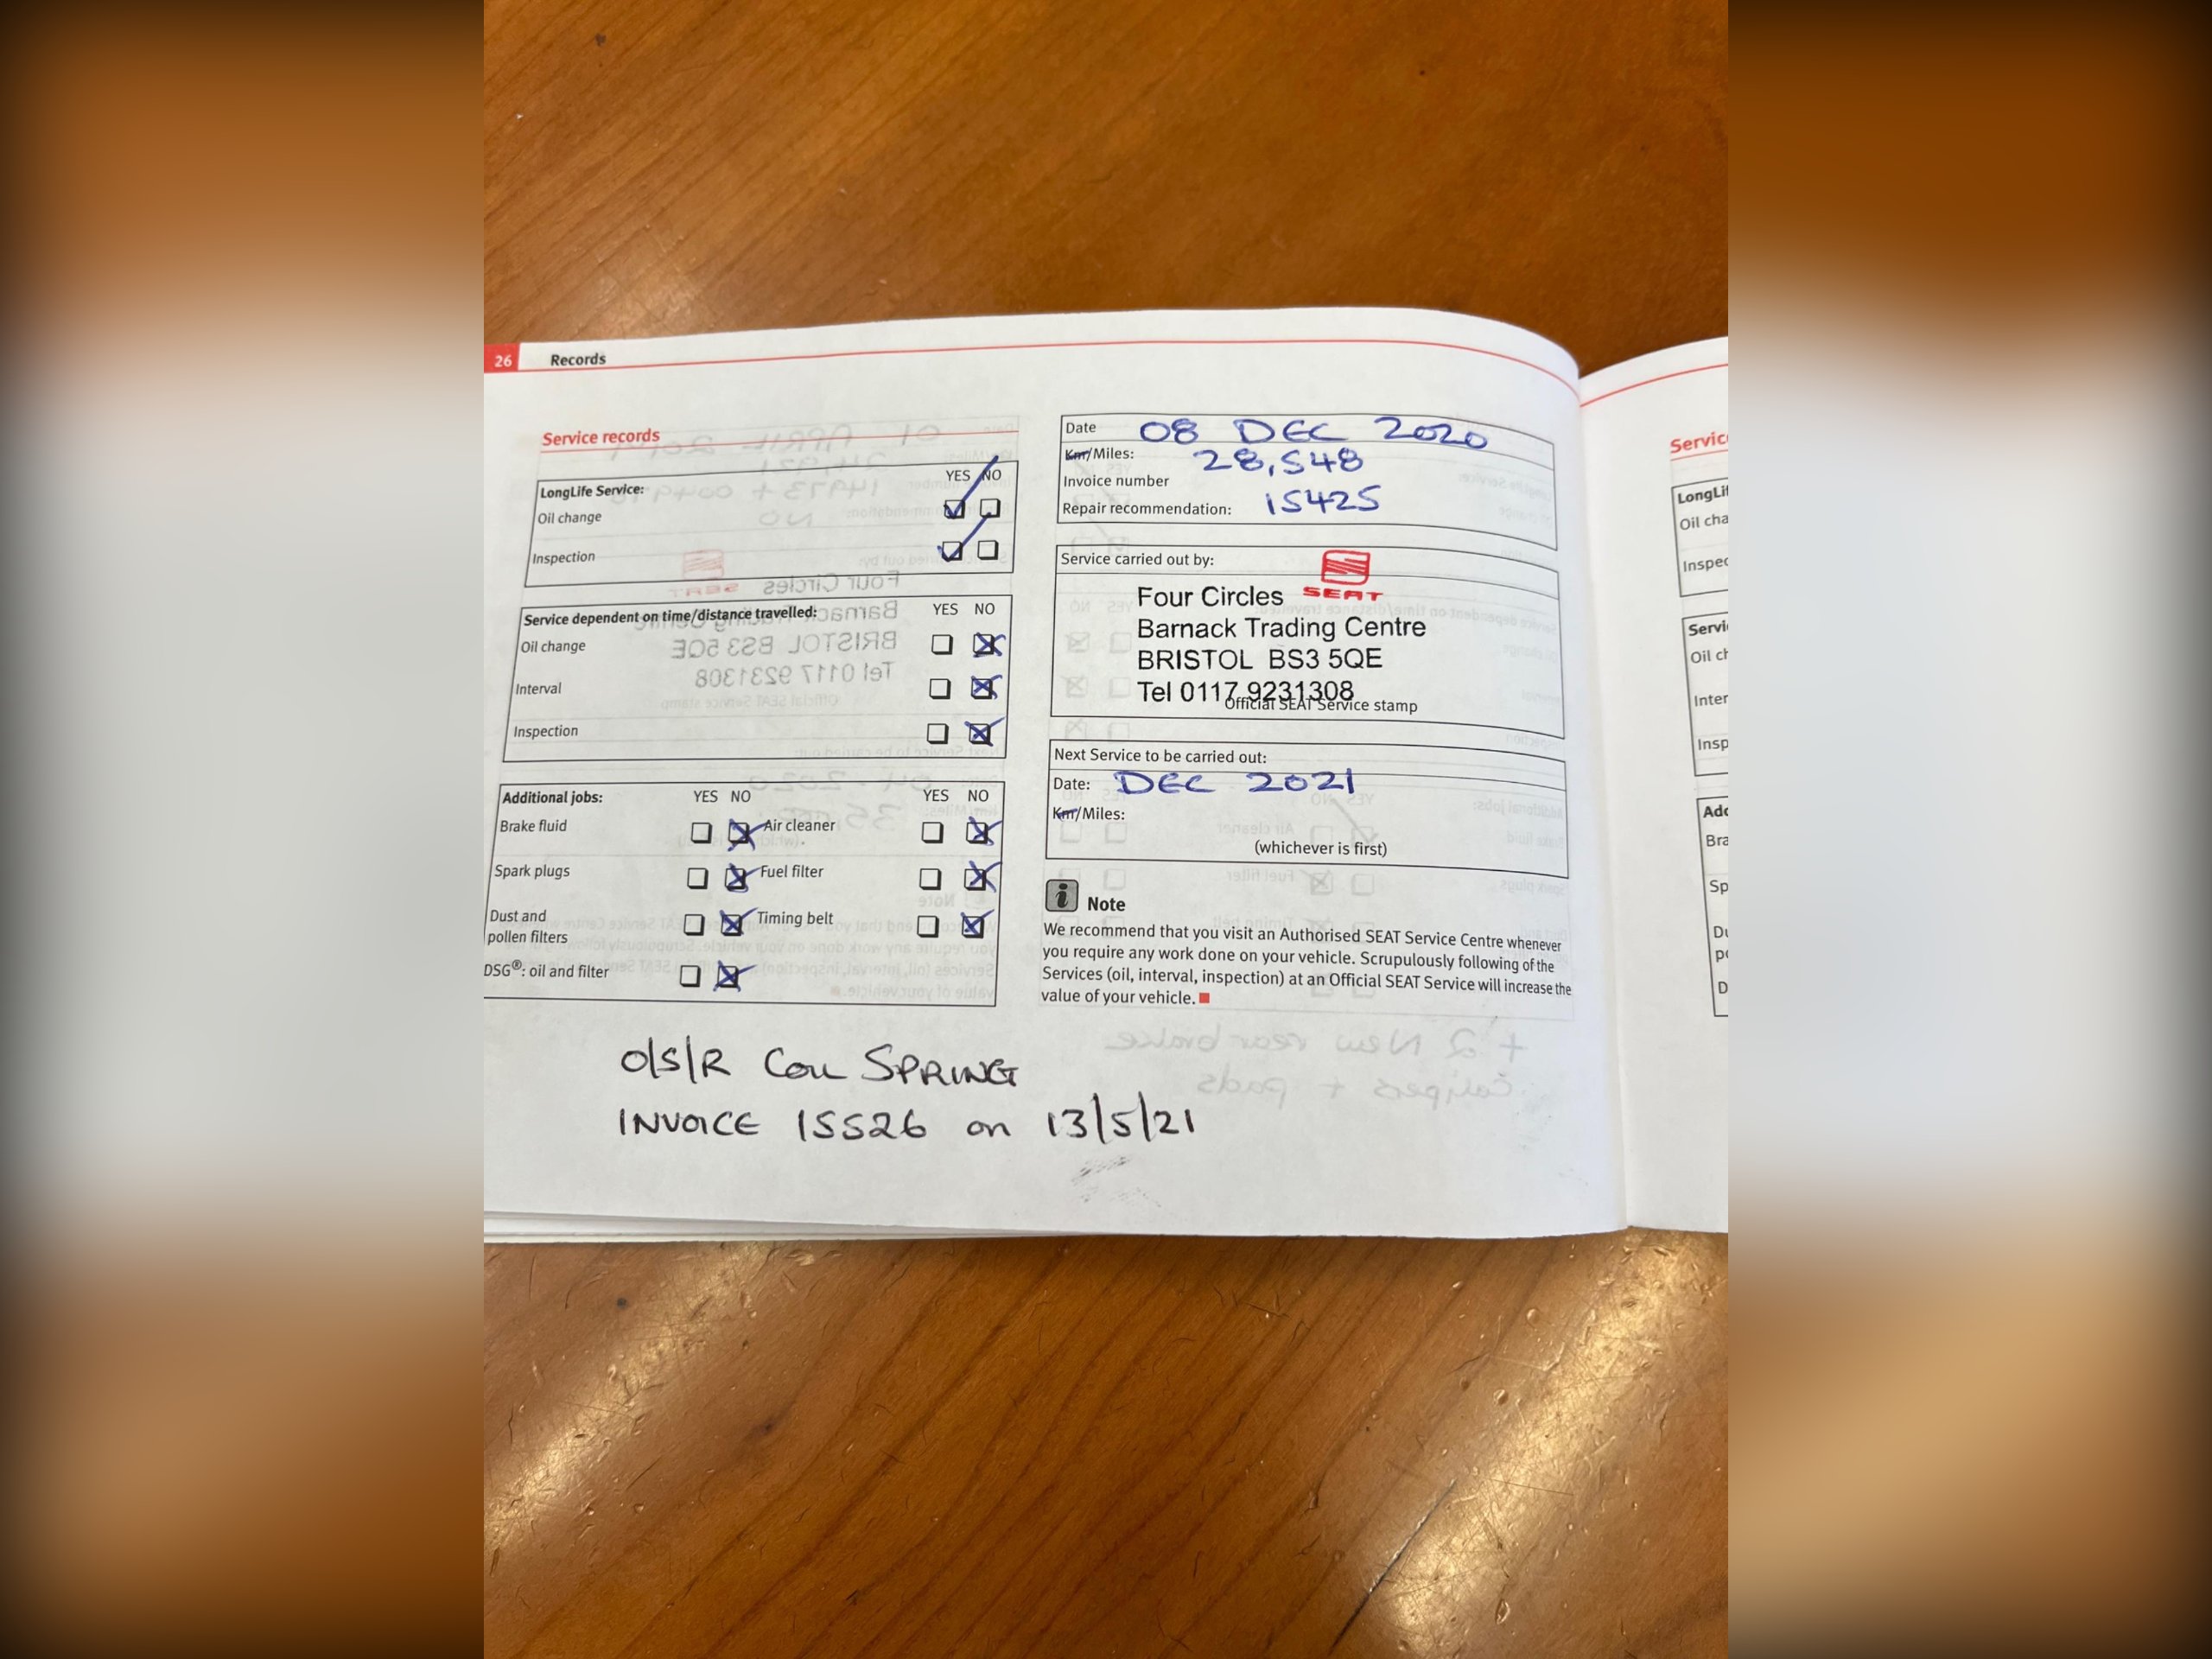 26 Records
Service records
LongLife Service: YES NO
Oil change
Inspection
Service dependent on time/distance travelled: YES NO
Oil change
Interval
Inspection
Additional jobs: YES NO YES NO
Brake fluid Air cleaner
Spark plugs Fuel filter
Dust and Timing belt
pollen filters
DSG®: oil and filter
O/S/R COIL SPRING
INVOICE 15526 on 13/5/21
Date 08 DEC 2020
Km/Miles: 28,548
Invoice number
Repair recommendation: 15425
Service carried out by:
SEAT
Four Circles
Barnack Trading Centre
BRISTOL BS3 5QE
Tel 0117 9231308
Official SEAT Service stamp
Next Service to be carried out:
Date: DEC 2021
Km/Miles:
(whichever is first)
Note
We recommend that you visit an Authorised SEAT Service Centre whenever
you require any work done on your vehicle. Scrupulously following of the
Services (oil, interval, inspection) at an Official SEAT Service will increase the
value of your vehicle.